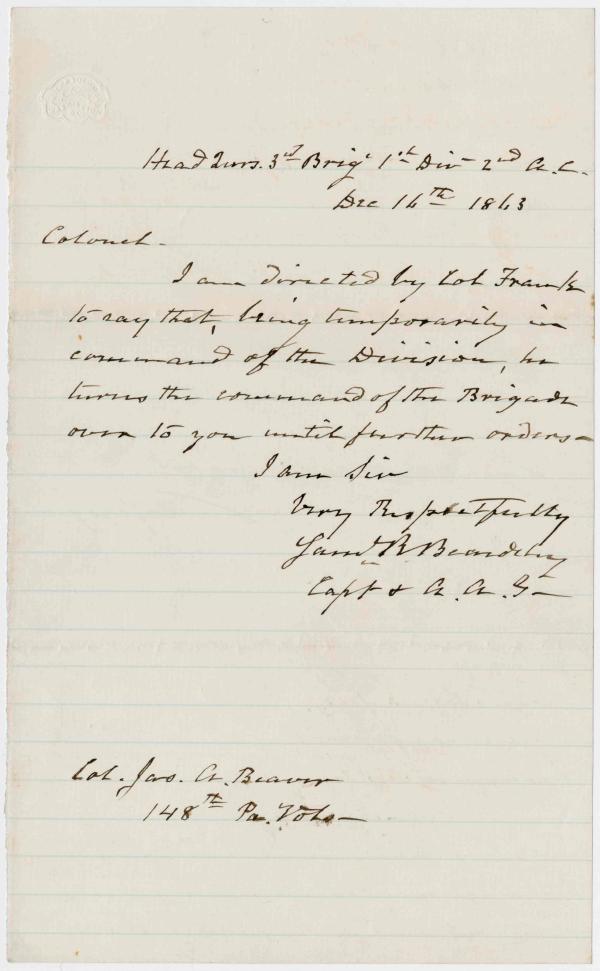 Head Qurs. 3rd Brigᵉ 1st Div 2nd A.C.
Dec 16th 1863
Colonel.
I am directed by Col Frank
to say that, being temporarily in
command of the Division, he
turns the command of the Brigade
over to you until further orders—
I am Sir
Very Respectfully
Saml R Beardsley
Capt & A.A.G—
Col. Jas. A. Beaver
148th Pa. Vols—